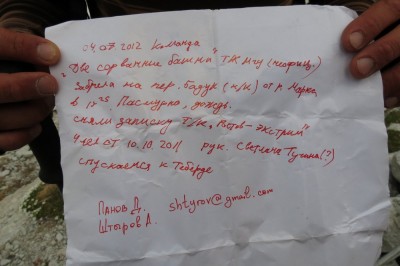 04.07 2012 Команда
"Две сорванние башни" Т/К МГУ (неофиц.)
Забрела на пер. Бадук (н/к) от л Марка
в 17²⁵ Пасмурно, дождь.
сняли записку Т/К "Ветов-экстрим"
4 чел от 10.10.2011 рук. Светлана Тугина(?)
спускаемся к Теберде
Панов Д. shtyrov@gmail.com
Штыров А.